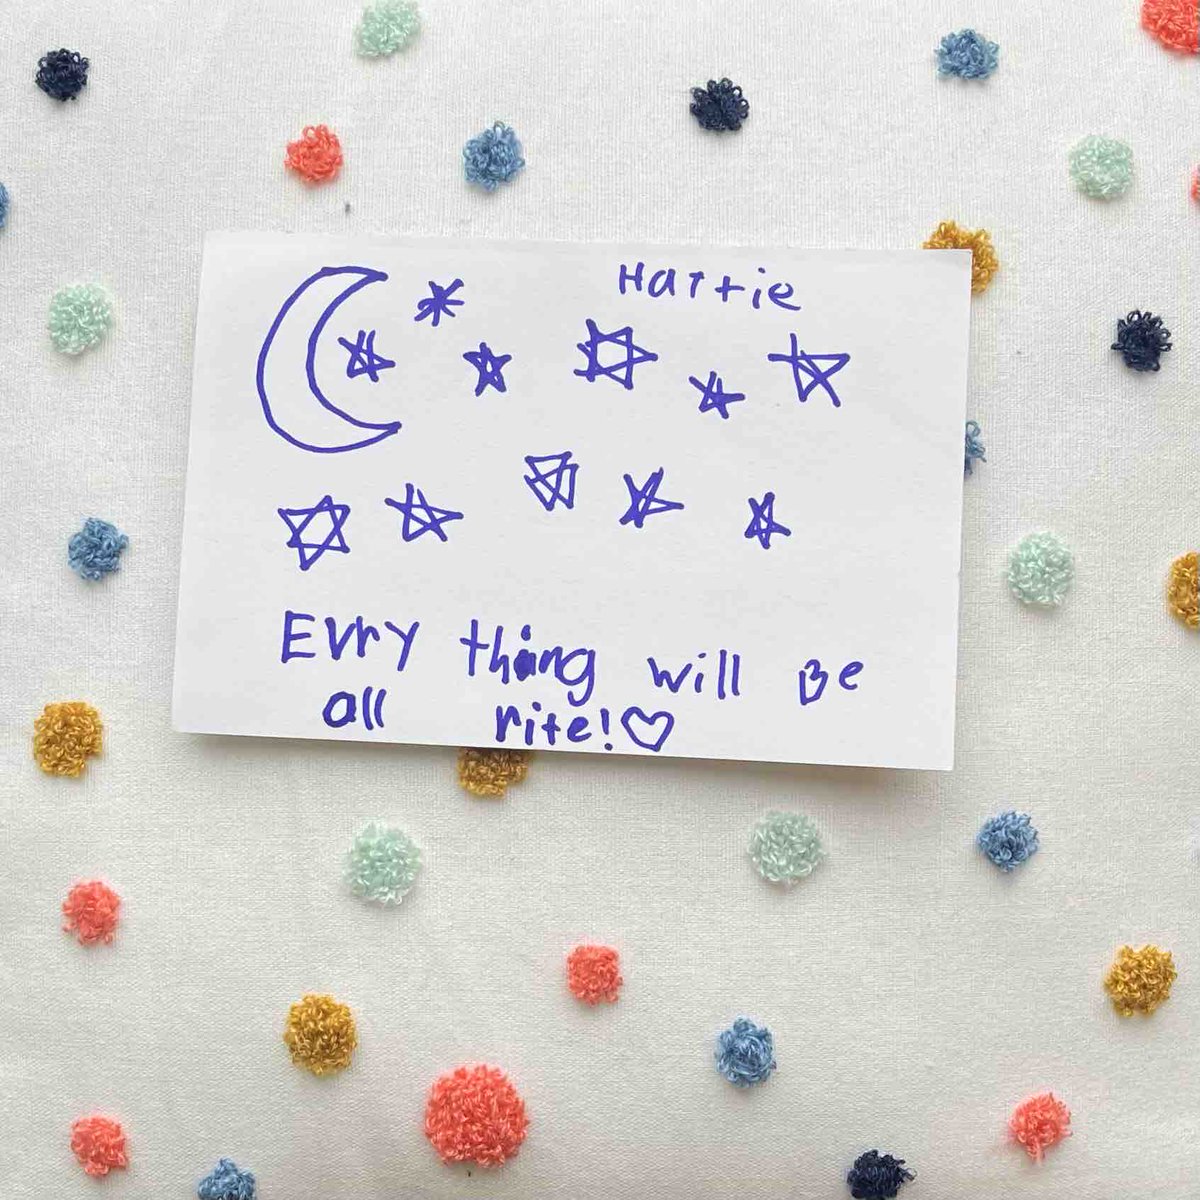 Hattie
Evry thing will Be
all rite!♡